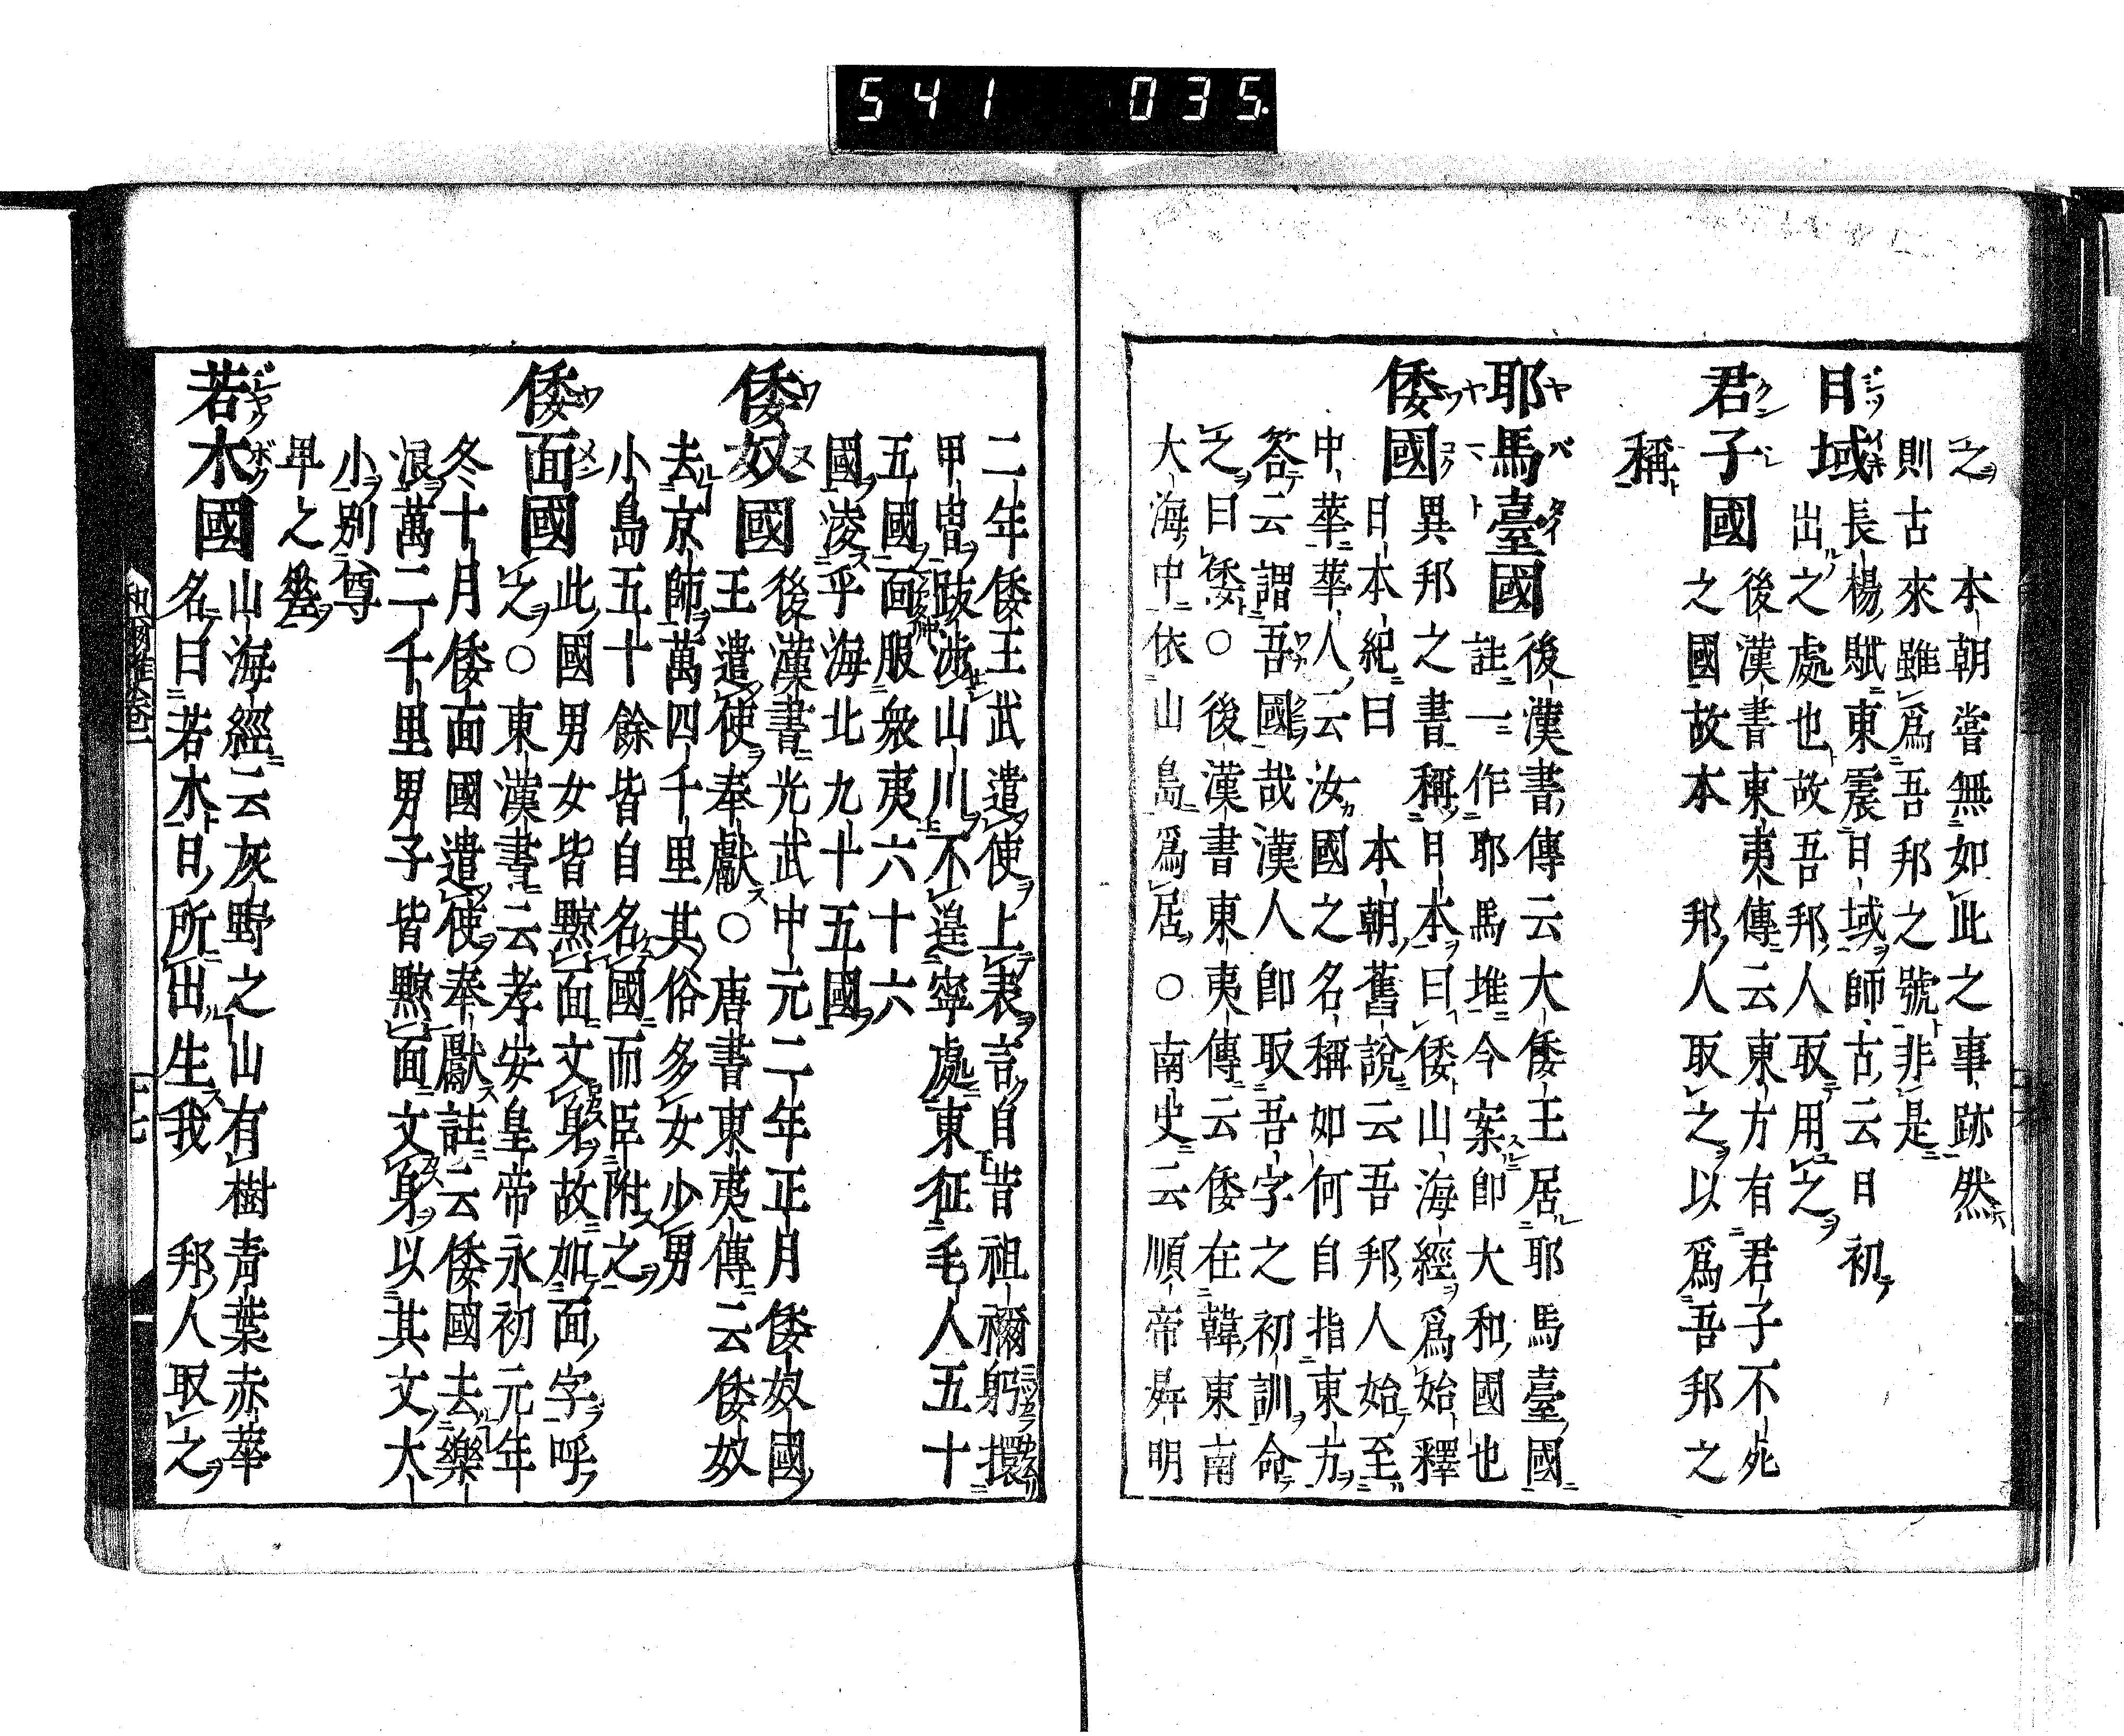 541 035.
之本朝嘗無如此之事跡然
則古來雖爲吾邦之號非是
日域長楊賦東震日域師古云日初
出之處也故吾邦人取用之
君子國後漢書東夷傳云東方有君子不死
之國故本邦人取之以爲吾邦之
稱
耶馬臺國後漢書傳云大倭王居耶馬臺國
註一作耶馬堆今案即大和國也
倭國異邦之書稱日本曰倭山海經爲始釋
日本紀曰本朝舊說云吾邦人始至
中華華人云汝國之名稱如何自指東方
答云謂吾國哉漢人即取吾字之初訓命
之曰倭○後漢書東夷傳云倭在韓東南
大海中依山島爲居○南史云順帝昇明
二年倭王武遣使上表言自昔祖禰躬擐
甲冑跋涉山川不遑寧處東征毛人五十
五國面服衆夷六十六
國淩乎海北九十五國
倭奴國後漢書光武中元二年正月倭奴國
王遣使奉獻○唐書東夷傳云倭奴
去京師萬四千里其俗多女少男
小島五十餘皆自名國而臣附之
倭面國此國男女皆黥面文身故加面字呼
之○東漢書云孝安皇帝永初元年
冬十月倭面國遣使奉獻註云倭國去樂
浪萬二千里男子皆黥面文身以其文大
小別尊
卑之差
若木國山海經云灰野之山有樹青葉赤華
名曰若木日所出生我邦人取之
十七